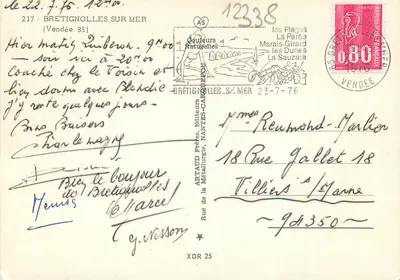 le 22.7.76 12.00
217 - BRETIGNOLLES SUR MER
(Vendée 85)
Hier matin Quiberon. 9H00
soir vu à 20H00
Couché chez le Voisin et
bien dormi avec Blondie
j'y reste quelques jours.
Bons Baisers
Charlemagne
Bien le bonjour
de Bretignolles
Marcel
G. Nesson
AS
12338
Couleurs
Naturelles
les Plages
La Parée
Marais-Girard
les Dunes
La Sauzaie
BRETIGNOLLES S/ MER 23-7-76
0.80
VENDEE
ARTAUD Frères, Editeurs
Rue de la Métallurgie, NANTES-CARQUEFOU
Mmes Reumond-Marlier
18 Rue Gallet 18
Villiers s/Marne
~ 94350 ~
XOR 25